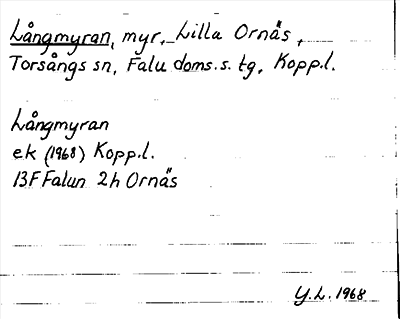 Långmyran, myr, Lilla Ornäs,
Torsångs sn, Falu doms.s. tg, Kopp.l.
Långmyran
ek (1968) Kopp.l.
13F Falun 2h Ornäs
Y.L. 1968